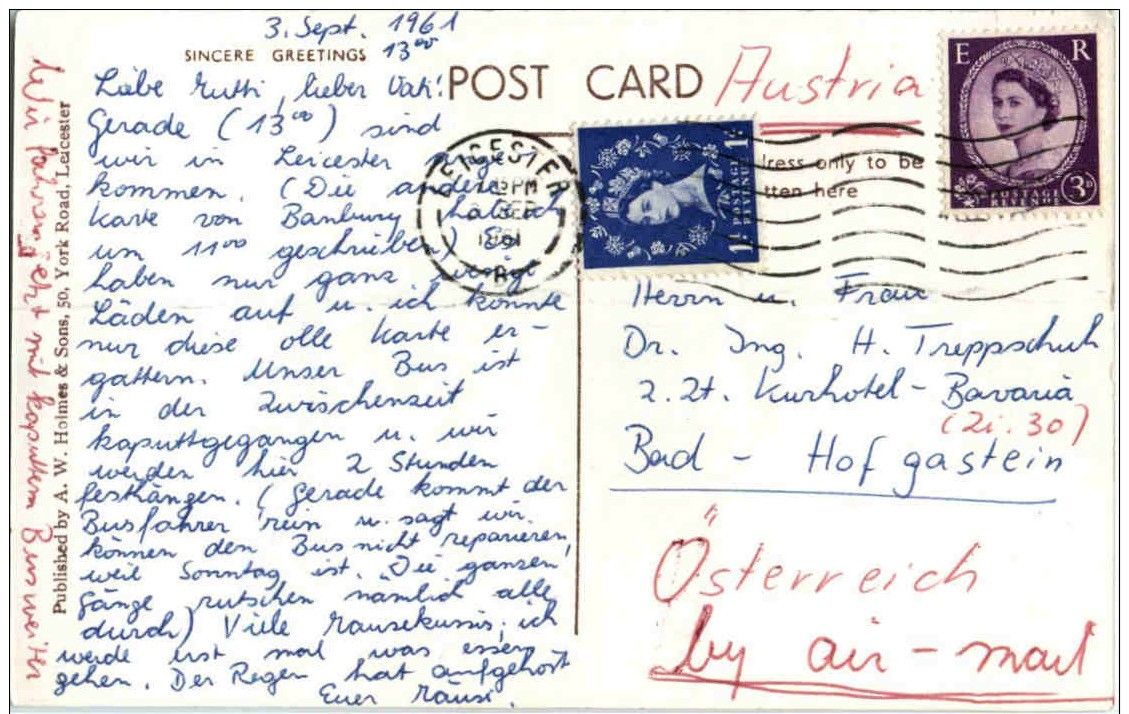 3. Sept. 1961
13⁰⁰
SINCERE GREETINGS
POST CARD
Austria
Liebe Mutti, lieber Vati!
Gerade (13⁰⁰) sind
wir in Leicester ange
kommen. (Die andere
Karte von Banbury hab ich
um 11⁰⁰ geschrieben) Es
haben nur ganz wenige
Läden auf u. ich konnte
nur diese olle Karte er-
gattern. Unser Bus ist
in der Zwischenzeit
kaputtgegangen u. wir
werden hier 2 Stunden
festhängen. (Gerade kommt der
Busfahrer rein u. sagt wir
können den Bus nicht reparieren,
weil Sonntag ist. Die ganzen
Gänge rutschen nämlich alle
durch) Viele Mausekussis, ich
werde erst mal was essen
gehen. Der Regen hat aufgehört
Euer Mausi.
Wir fahren jetzt mit kaputtem Bus weiter
Published by A. W. Holmes & Sons, 50, York Road, Leicester
LEICESTER
15 PM
SEP
1961
1½D
POSTAGE
REVENUE
E R
POSTAGE
REVENUE
3D
dress only to be
tten here
Herrn u. Frau
Dr. Ing. H. Treppschuh
z. Zt. Kurhotel - Bavaria
(Zi. 30)
Bad - Hofgastein
Österreich
by air-mail